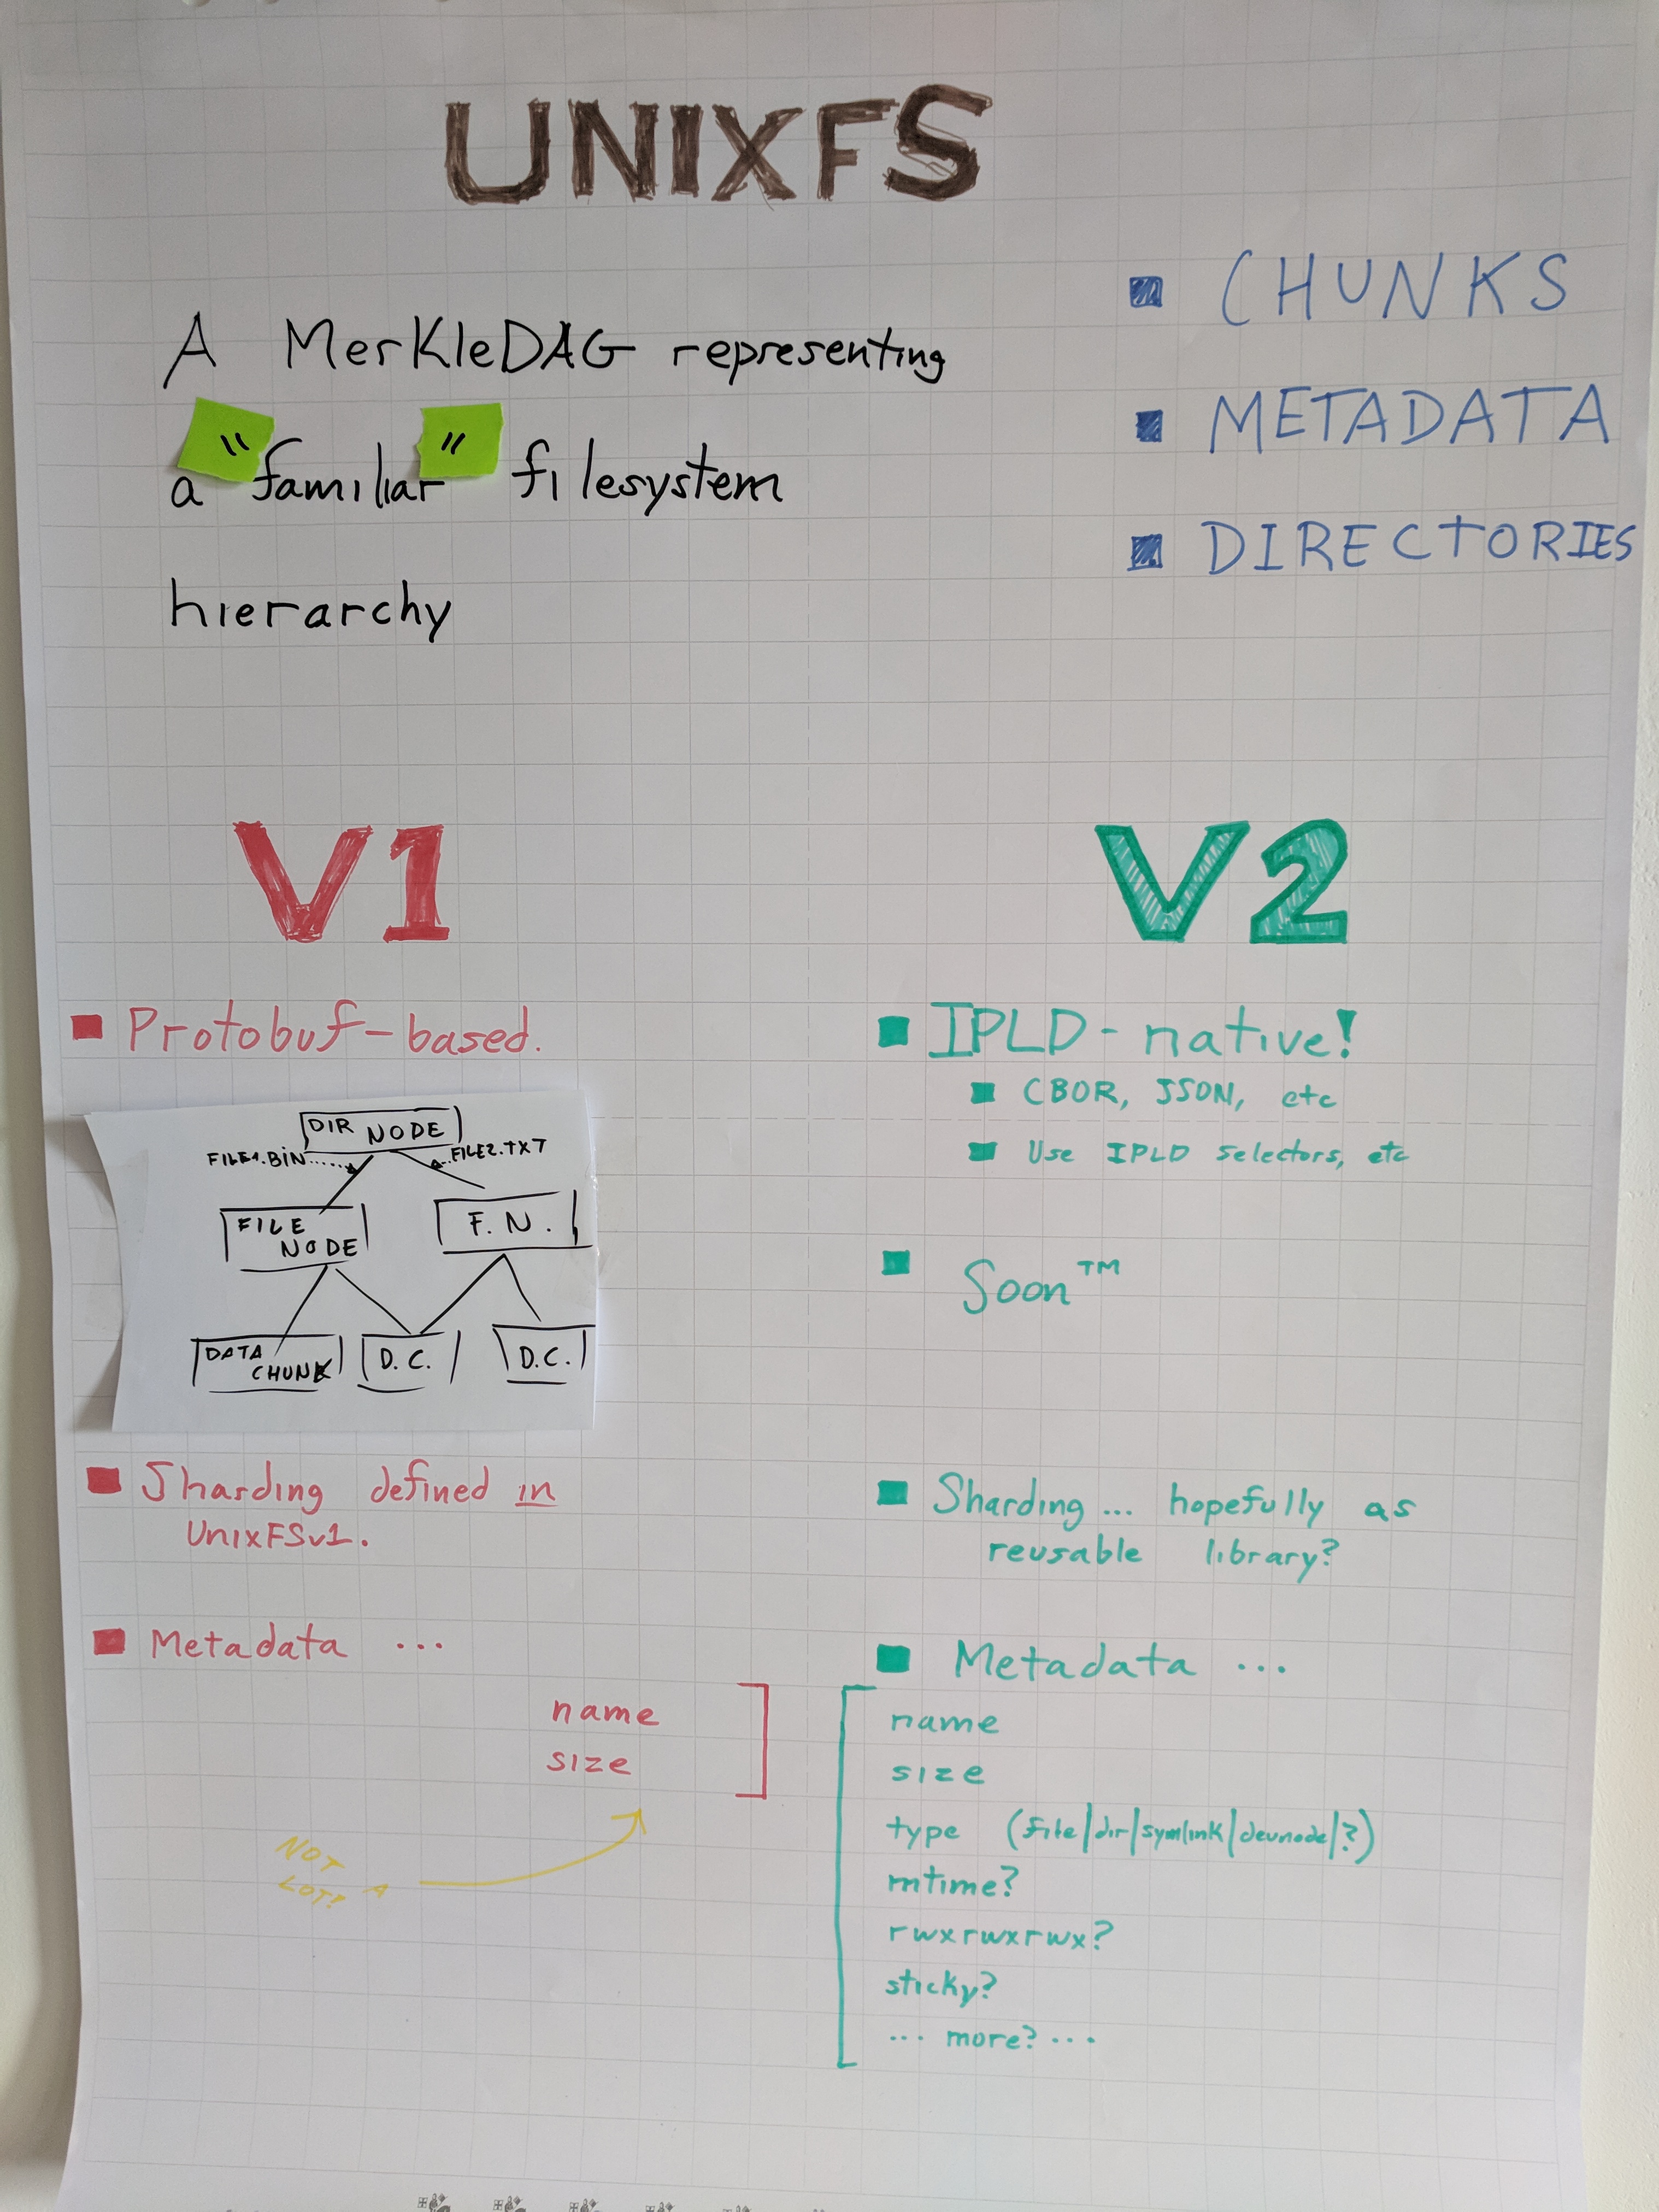 UNIXFS
A MerkleDAG representing
a "familiar" filesystem
hierarchy
CHUNKS
METADATA
DIRECTORIES
V1
Protobuf-based.
DIR NODE
FILE1.BIN
FILE2.TXT
FILE
NODE
F. N.
DATA
CHUNK
D.C.
D.C.
Sharding defined in
UnixFSv1.
Metadata ...
name
size
NOT
A LOT!
V2
IPLD-native!
CBOR, JSON, etc
Use IPLD selectors, etc
Soon™
Sharding... hopefully as
reusable library?
Metadata ...
name
size
type (file|dir|symlink|devnode|?)
mtime?
rwxrwxrwx?
sticky?
... more? ...